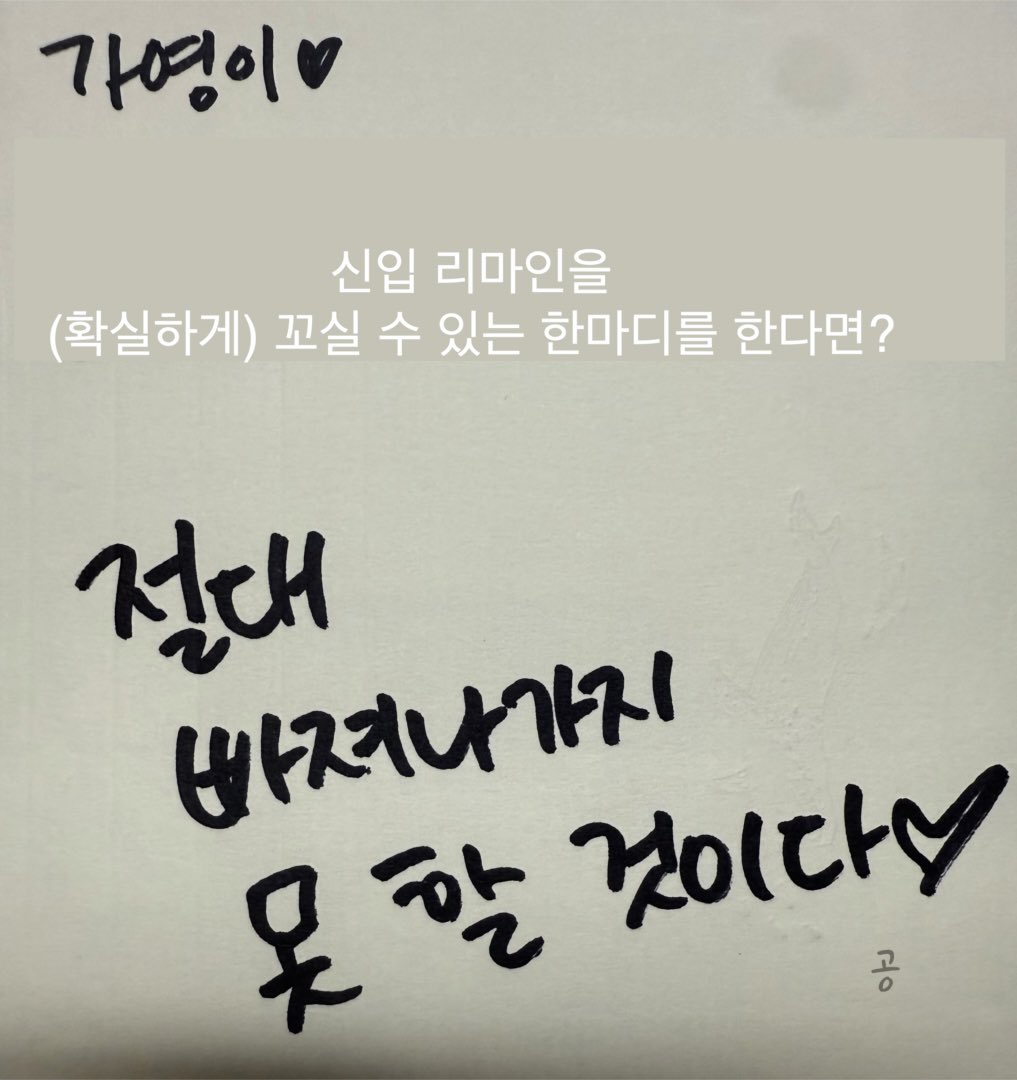 가영이♡
신입 리마인을
(확실하게) 꼬실 수 있는 한마디를 한다면?
절대
빠져나가지
못 할 것이다♡
공